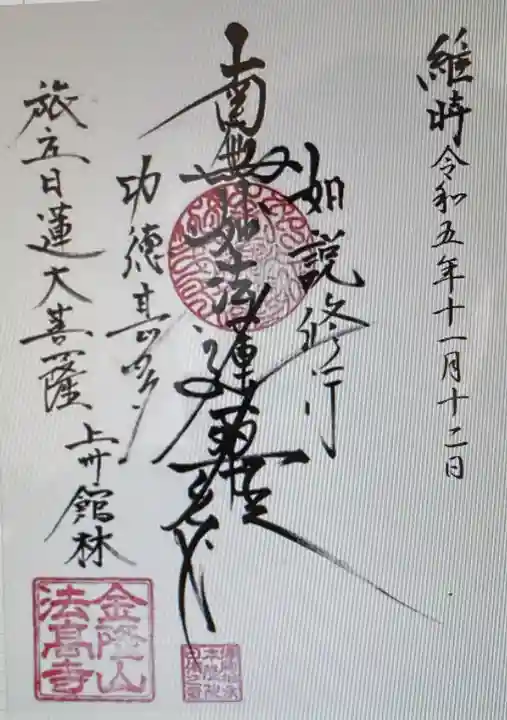 維時令和五年十一月十二日
如説修行
南無妙法蓮華経
功徳甚多
旅立日蓮大菩薩
上州館林
金隆山
法高寺